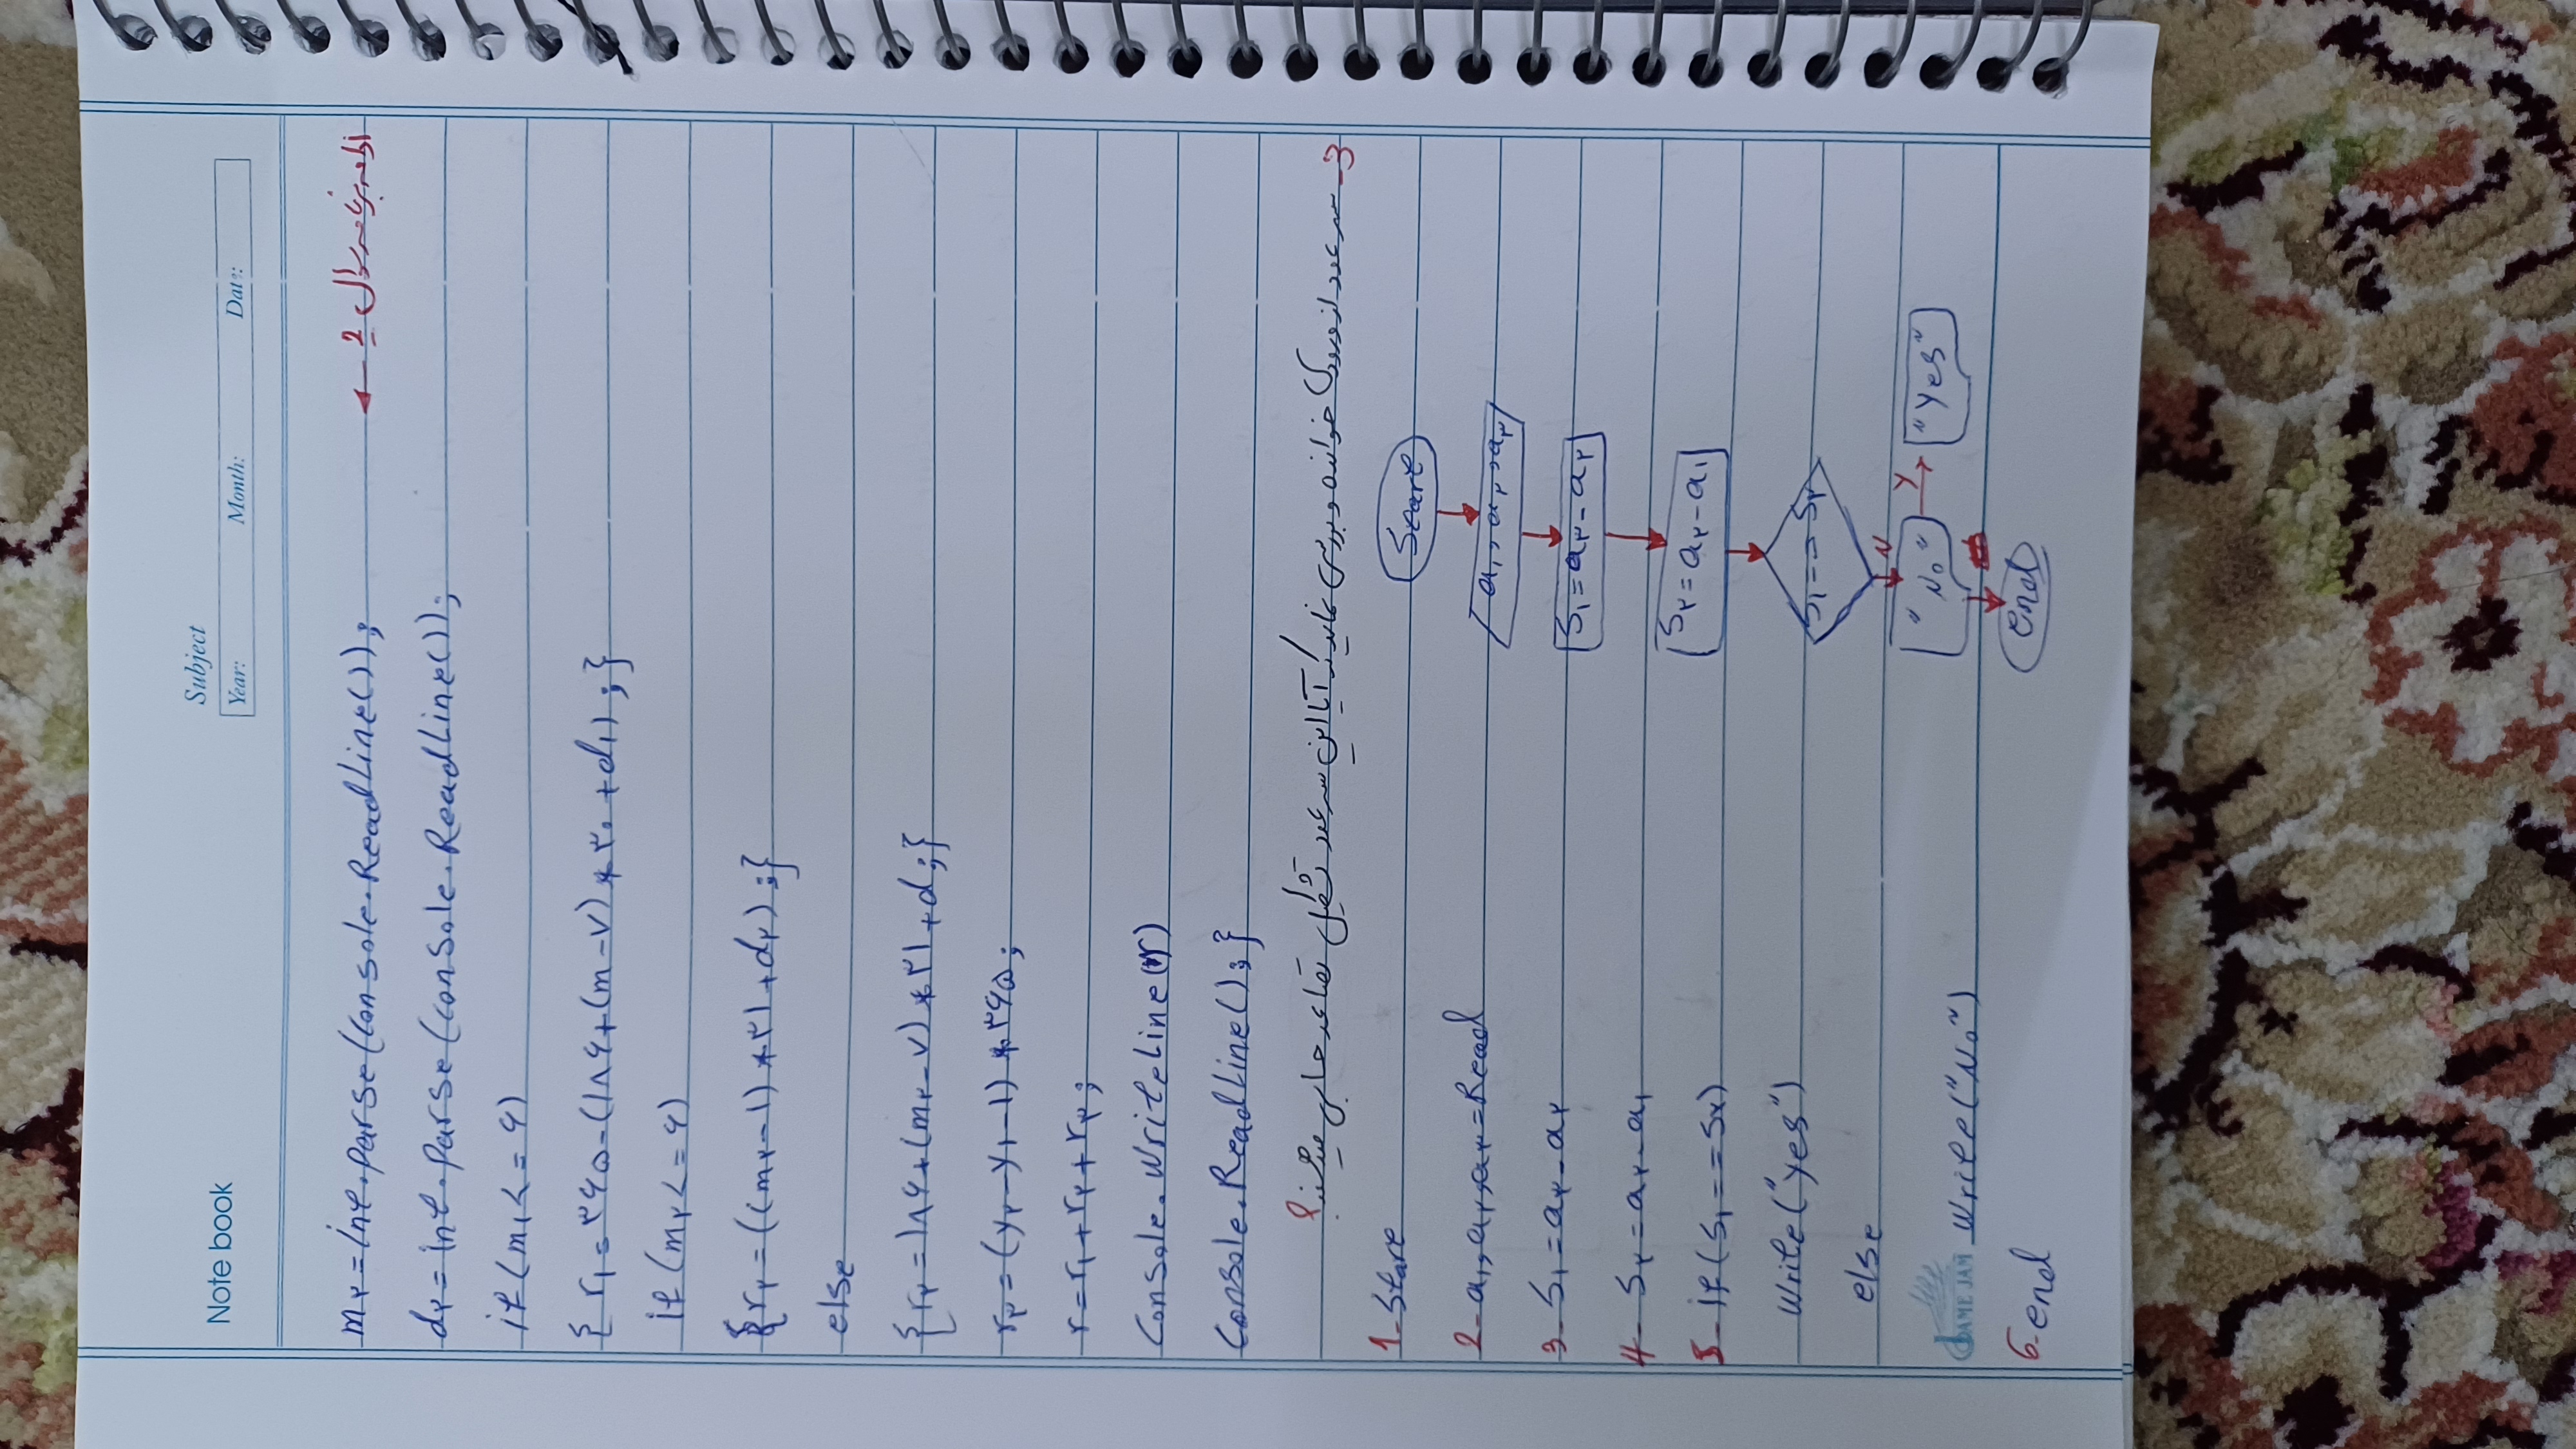 Note book
Subject
Year: Month: Date:
ادامه برنامه سوال 2
m۲=int.parse(Console.ReadLine());
d۲=int.parse(console.ReadLine());
if(m۱<=۶)
{r۱=۳۶۵-(۱۸۶+(m-۷)*۳۰+d۱);}
if(m۲<=۶)
{r۲=((m۲-۱)*۳۱+d۲);}
else
{r۲=۱۸۶+(m۲-۷)*۳۱+d;}
r۳=(y۲-y۱-۱)*۳۶۵;
r=r۱+r۲+r۳;
Console.WriteLine(r)
Console.ReadLine();}
3- سه عدد از ورودی خوانده و بررسی نماید که آیا این سه عدد تشکیل تصاعد حسابی میدهند؟
1- Start
2- a۱,a۲,a۳=Read
3- S۱=a۳-a۲
4- S۲=a۲-a۱
5- if(S۱==S۲)
Write("yes")
else
Write("No")
6- end
Start
a۱,a۲,a۳
S۱=a۳-a۲
S۲=a۲-a۱
S۱==S۲
N
"No" Y "Yes"
end
GAME JAM